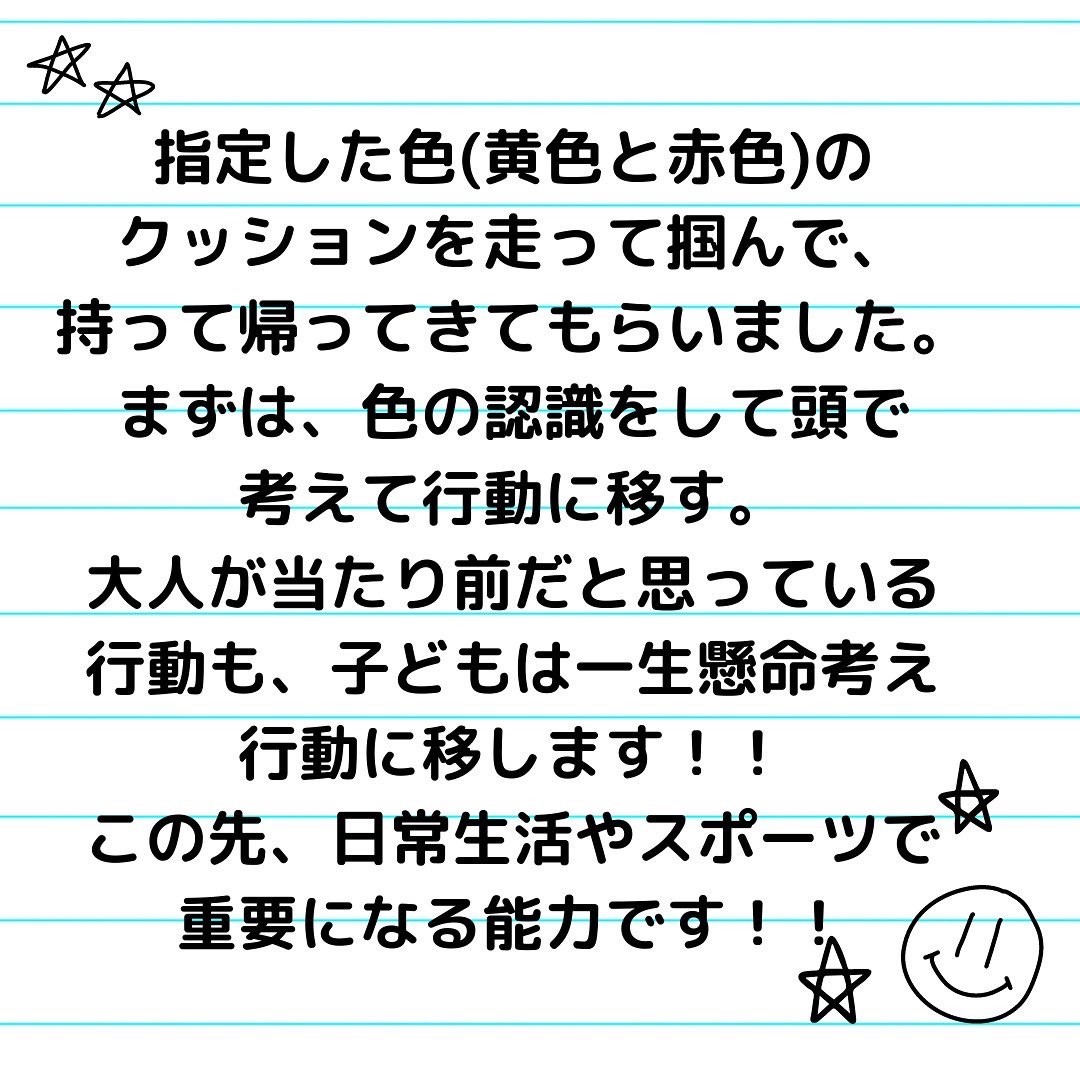 指定した色(黄色と赤色)の
クッションを走って掴んで、
持って帰ってきてもらいました。
まずは、色の認識をして頭で
考えて行動に移す。
大人が当たり前だと思っている
行動も、子どもは一生懸命考え
行動に移します！！
この先、日常生活やスポーツで
重要になる能力です！！